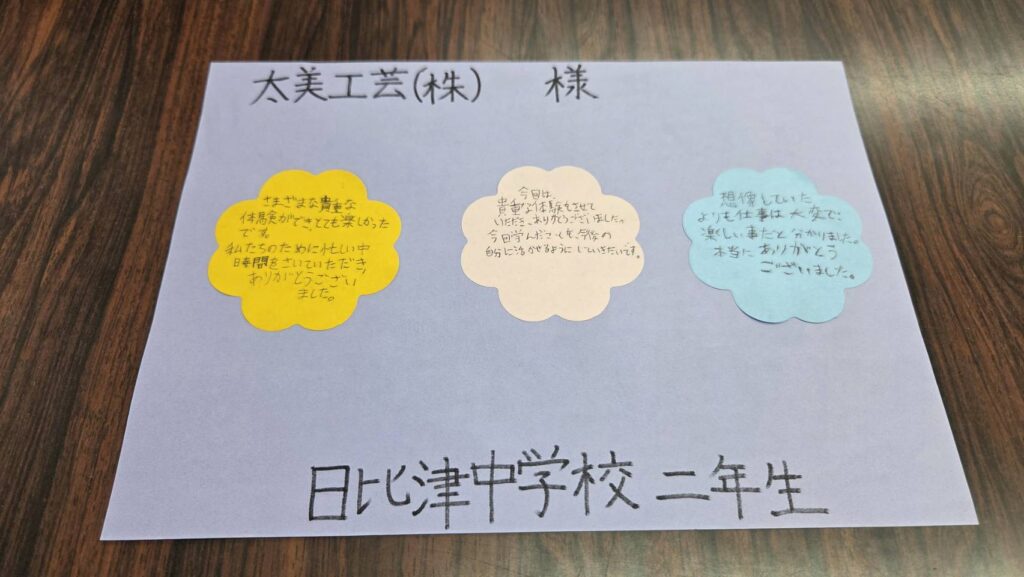 太美工芸(株) 様
さまざまな貴重な
体験ができとても楽しかった
です。
私たちのために忙しい中
時間をさいていただき
ありがとうござい
ました。
今回は、
貴重な体験をさせて
いただき、ありがとうございました。
今回学んだことを、今後の
自分に活かせるようにしていきたいです。
想像していた
よりも仕事は大変で
楽しい事だと分かりました。
本当にありがとう
ございました。
日比津中学校 二年生